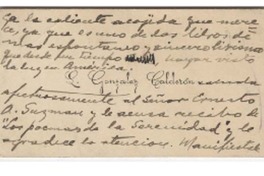 ga la caliente acojida que mere-
ce, ya que es uno de dos libros de
mas espontaneo y sincero lirismo
que desde un tiempo hayan visto
la luz en América.
L. González Calderón saluda
afectuosamente al Señor Ernesto
A. Guzman y le acusa recibo de
"Los poemas de la Serenidad" y le
agradece la atencion. Manifiesta